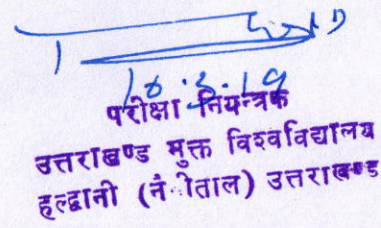 18.3.19
परीक्षा नियन्त्रक
उत्तराखण्ड मुक्त विश्वविद्यालय
हल्द्वानी (नैनीताल) उत्तराखण्ड